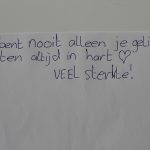 bent nooit alleen je geli
ten altijd in hart ♡
VEEL sterkte!